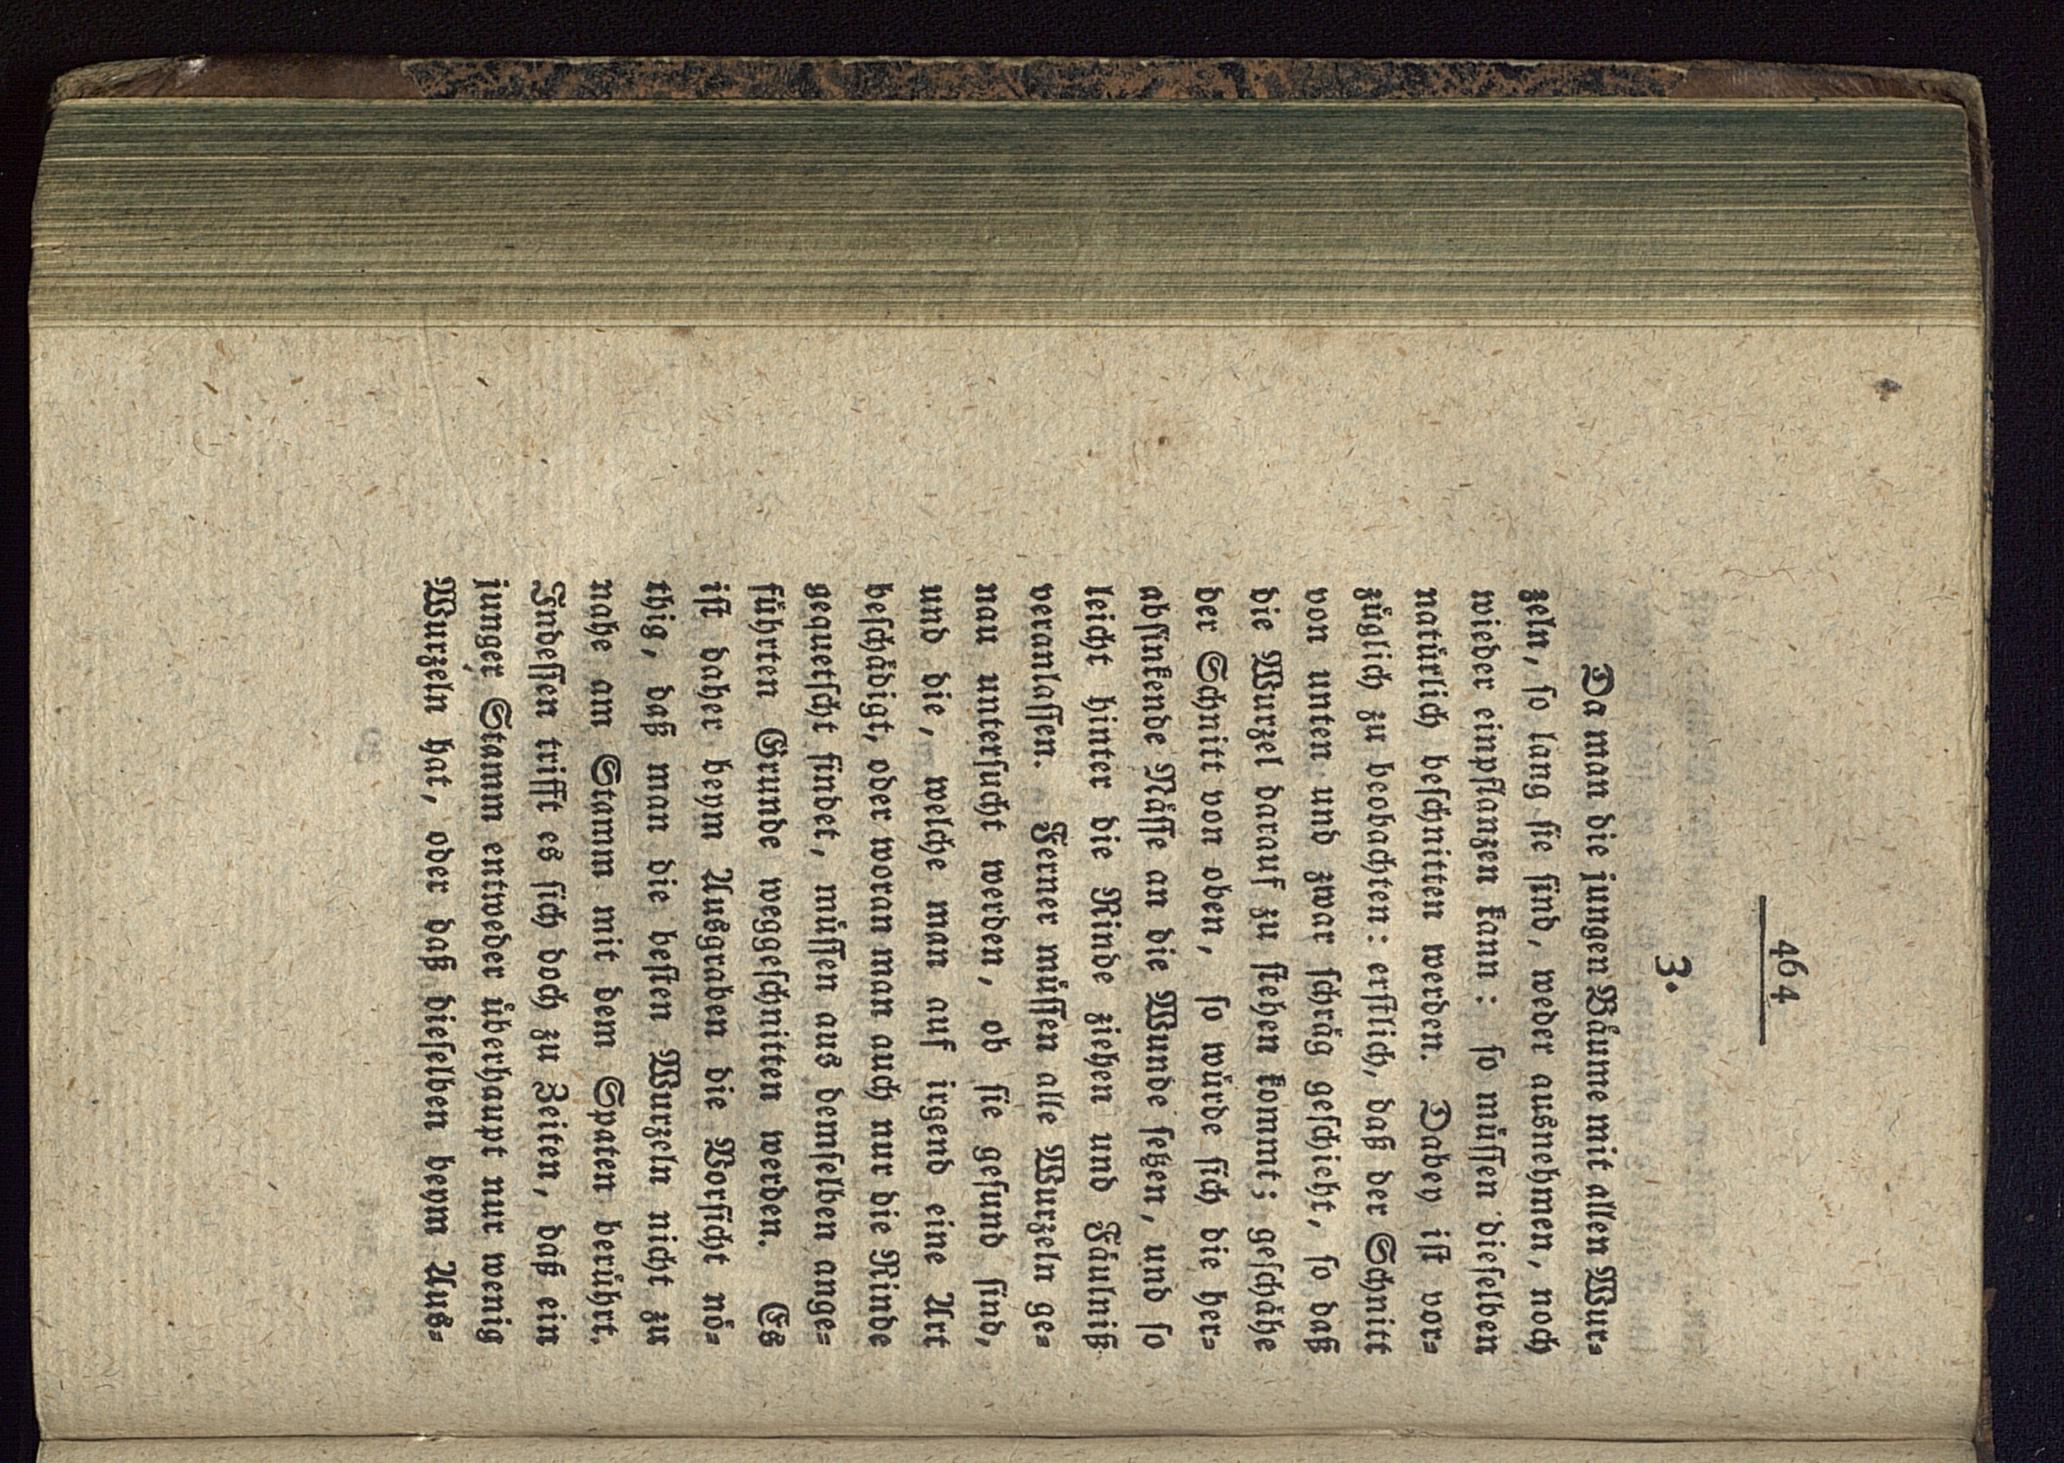 464
3.
Da man die jungen Bäume mit allen Wur-
zeln, so lang sie sind, weder ausnehmen, noch
wieder einpflanzen kann: so müssen dieselben
natürlich beschnitten werden. Dabey ist vor-
züglich zu beobachten: erstlich, daß der Schnitt
von unten und zwar schräg geschieht, so daß
die Wurzel darauf zu stehen kommt; geschähe
der Schnitt von oben, so würde sich die her-
absinkende Nässe an die Wunde setzen, und so
leicht hinter die Rinde ziehen und Fäulniß
veranlassen. Ferner müssen alle Wurzeln ge-
nau untersucht werden, ob sie gesund sind,
und die, welche man auf irgend eine Art
beschädigt, oder woran man auch nur die Rinde
gequetscht findet, müssen aus demselben ange-
führten Grunde weggeschnitten werden. Es
ist daher beym Ausgraben die Vorsicht nö-
thig, daß man die besten Wurzeln nicht zu
nahe am Stamm mit dem Spaten berührt.
Indessen trifft es sich doch zu Zeiten, daß ein
junger Stamm entweder überhaupt nur wenig
Wurzeln hat, oder daß dieselben beym Aus-